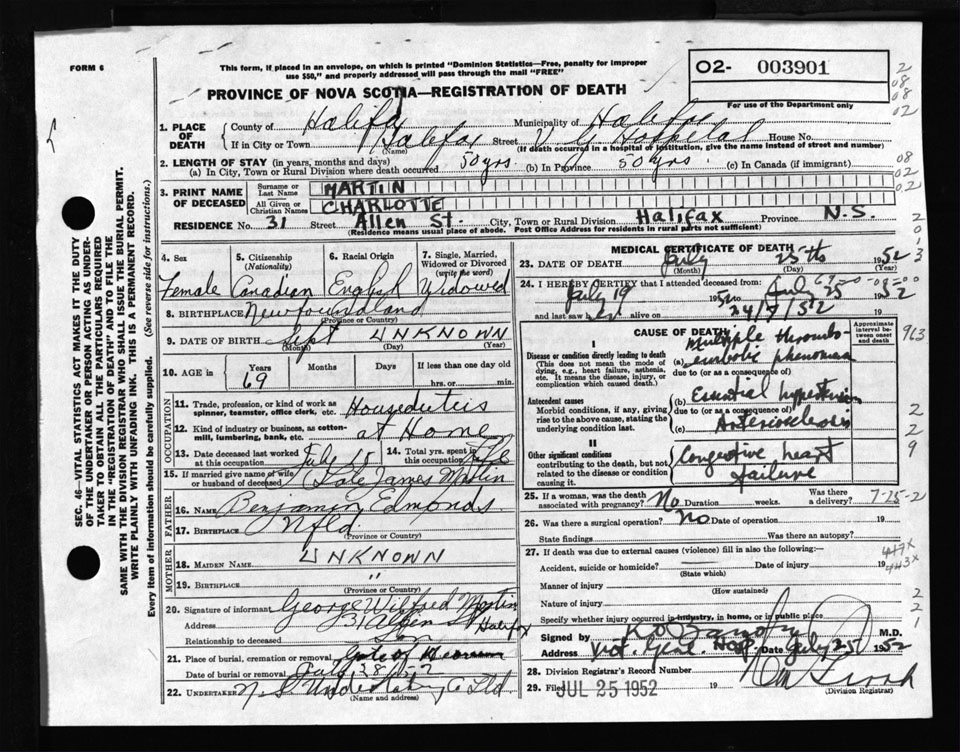 FORM 6
This form, if placed in an envelope, on which is printed "Dominion Statistics—Free, penalty for improper
use $50," and properly addressed will pass through the mail "FREE"
O2- 003901
For use of the Department only
PROVINCE OF NOVA SCOTIA—REGISTRATION OF DEATH
1. PLACE OF DEATH { County of Halifax Municipality of Halifax
If in City or Town Halifax (Name) Street V G Hospital House No.
(If death occurred in a hospital or institution, give the name instead of street and number)
2. LENGTH OF STAY (in years, months and days)
(a) In City, Town or Rural Division where death occurred 50 yrs. (b) In Province 50 yrs. (c) In Canada (if immigrant)
3. PRINT NAME OF DECEASED { Surname or Last Name MARTIN
All Given or Christian Names CHARLOTTE
RESIDENCE No. 31 Street Allen St. City, Town or Rural Division Halifax Province N.S.
(Residence means usual place of abode. Post Office Address for residents in rural parts not sufficient)
4. Sex
Female
5. Citizenship (Nationality)
Canadian
6. Racial Origin
English
7. Single, Married, Widowed or Divorced (write the word)
Widowed
8. BIRTHPLACE Newfoundland
(Province or Country)
9. DATE OF BIRTH Sept UNKNOWN
(Month) (Day) (Year)
10. AGE in Years Months Days If less than one day
69 hrs. or min.
OCCUPATION
11. Trade, profession or kind of work as
spinner, teamster, office clerk, etc. Houseduties
12. Kind of industry or business, as cotton-
mill, lumbering, bank, etc. at Home
13. Date deceased last worked
at this occupation July 15
14. Total yrs. spent in
this occupation Life
15. If married give name of wife
or husband of deceased Late James Martin
FATHER
16. Name Benjamin Edmonds
17. Birthplace Nfld.
(Province or Country)
MOTHER
18. MAIDEN NAME UNKNOWN
19. BIRTHPLACE "
(Province or Country)
20. Signature of informant George Wilfred Martin
Address 31 Allen St Halifax
Relationship to deceased Son
21. Place of burial, cremation or removal Gate of Heaven
Date of burial, cremation or removal July
22. UNDERTAKER N.S. Undertaking Co Ltd.
(Name and address)
MEDICAL CERTIFICATE OF DEATH
23. DATE OF DEATH July 25th 1952
(Month) (Day) (Year)
24. I HEREBY CERTIFY that I attended deceased from:
July 19 1952 to July 25 1952
and last saw her alive on 24/7/52 19
CAUSE OF DEATH
Approximate interval between onset and death
I
Disease or condition directly leading to death
(This does not mean the mode of
dying, e.g., heart failure, asthenia,
etc. It means the disease, injury, or
complication which caused death.)
(a) Multiple thrombo-
embolic phenomena
due to (or as a consequence of)
Antecedent causes
Morbid conditions, if any, giving
rise to the above cause, stating the
underlying condition last.
(b) Essential hypertension
due to (or as a consequence of)
(c) Arteriosclerosis
II
Other significant conditions
contributing to the death, but not
related to the disease or condition
causing it.
Congestive heart
failure
25. If a woman, was the death
associated with pregnancy? No Duration weeks. Was there a delivery?
7-25-2
26. Was there a surgical operation? No Date of operation 19
State findings Was there an autopsy?
27. If death was due to external causes (violence) fill in also the following:—
Accident, suicide or homicide? Date of injury 19
(State which)
Manner of injury
(How sustained)
Nature of injury
Specify whether injury occurred in industry, in home, or in public place
Signed by M.D.
Address Vict. Genl. Hosp. Date July 25 1952
28. Division Registrar's Record Number
29. Filed JUL 25 1952 19
(Division Registrar)
SEC. 46—VITAL STATISTICS ACT MAKES IT THE DUTY
OF THE UNDERTAKER OR PERSON ACTING AS UNDER-
TAKER TO OBTAIN ALL THE PARTICULARS REQUIRED
IN THE "REGISTRATION OF DEATH" AND TO FILE THE
SAME WITH THE DIVISION REGISTRAR WHO SHALL ISSUE THE BURIAL PERMIT.
WRITE PLAINLY WITH UNFADING INK. THIS IS A PERMANENT RECORD.
Every item of information should be carefully supplied. (See reverse side for instructions.)